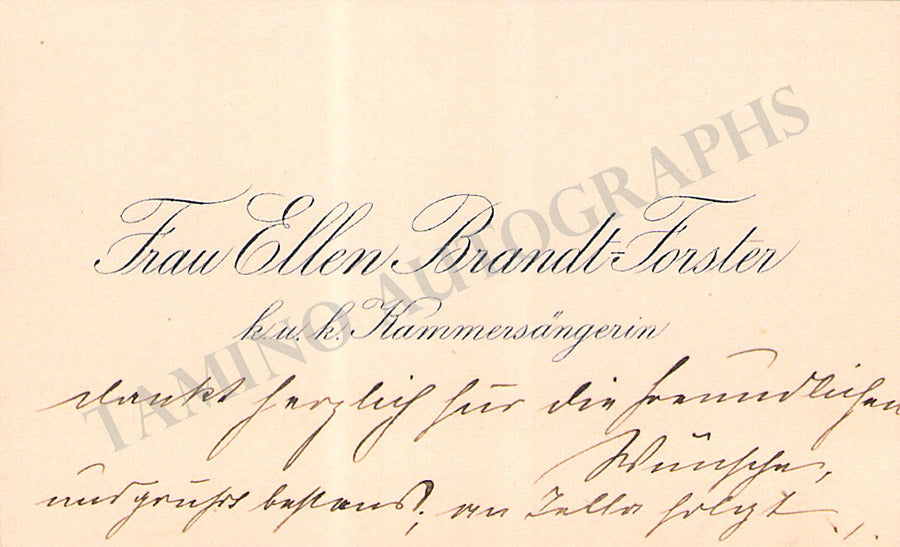 Frau Ellen Brandt-Forster
k. u. k. Kammersängerin
dankt herzlich für die freundlichen
Wünsche,
und grüßt bestens; an Tella folgt
TAMINO AUTOGRAPHS